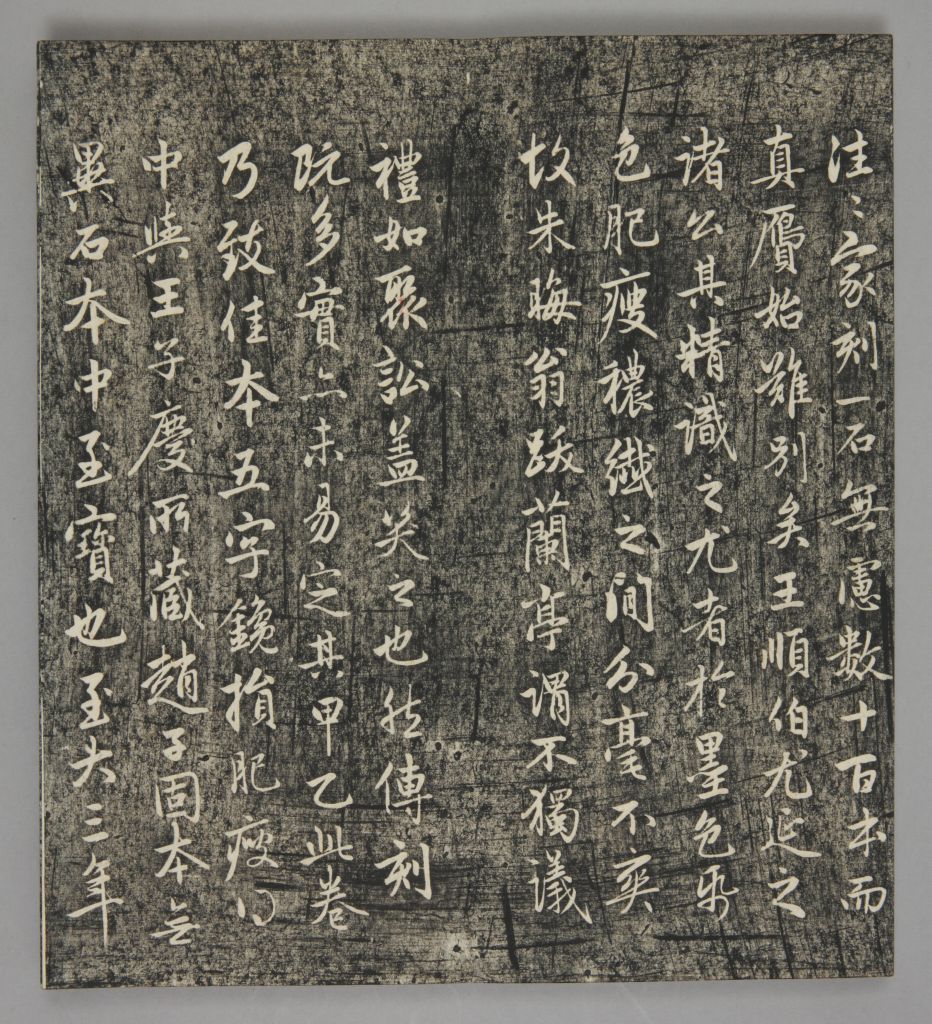 往〻家刻一石無慮數十百本而
真贋始難別矣王順伯尤延之
諸公其精識之尤者於墨色帋
色肥瘦穠纖之間分毫不爽
故朱晦翁跋蘭亭謂不獨議
禮如聚訟盖笑之也然傳刻
既多實亦未易定其甲乙此卷
乃致佳本五字鑱損肥瘦得
中與王子慶所藏趙子固本无
異石本中至寶也至大三年